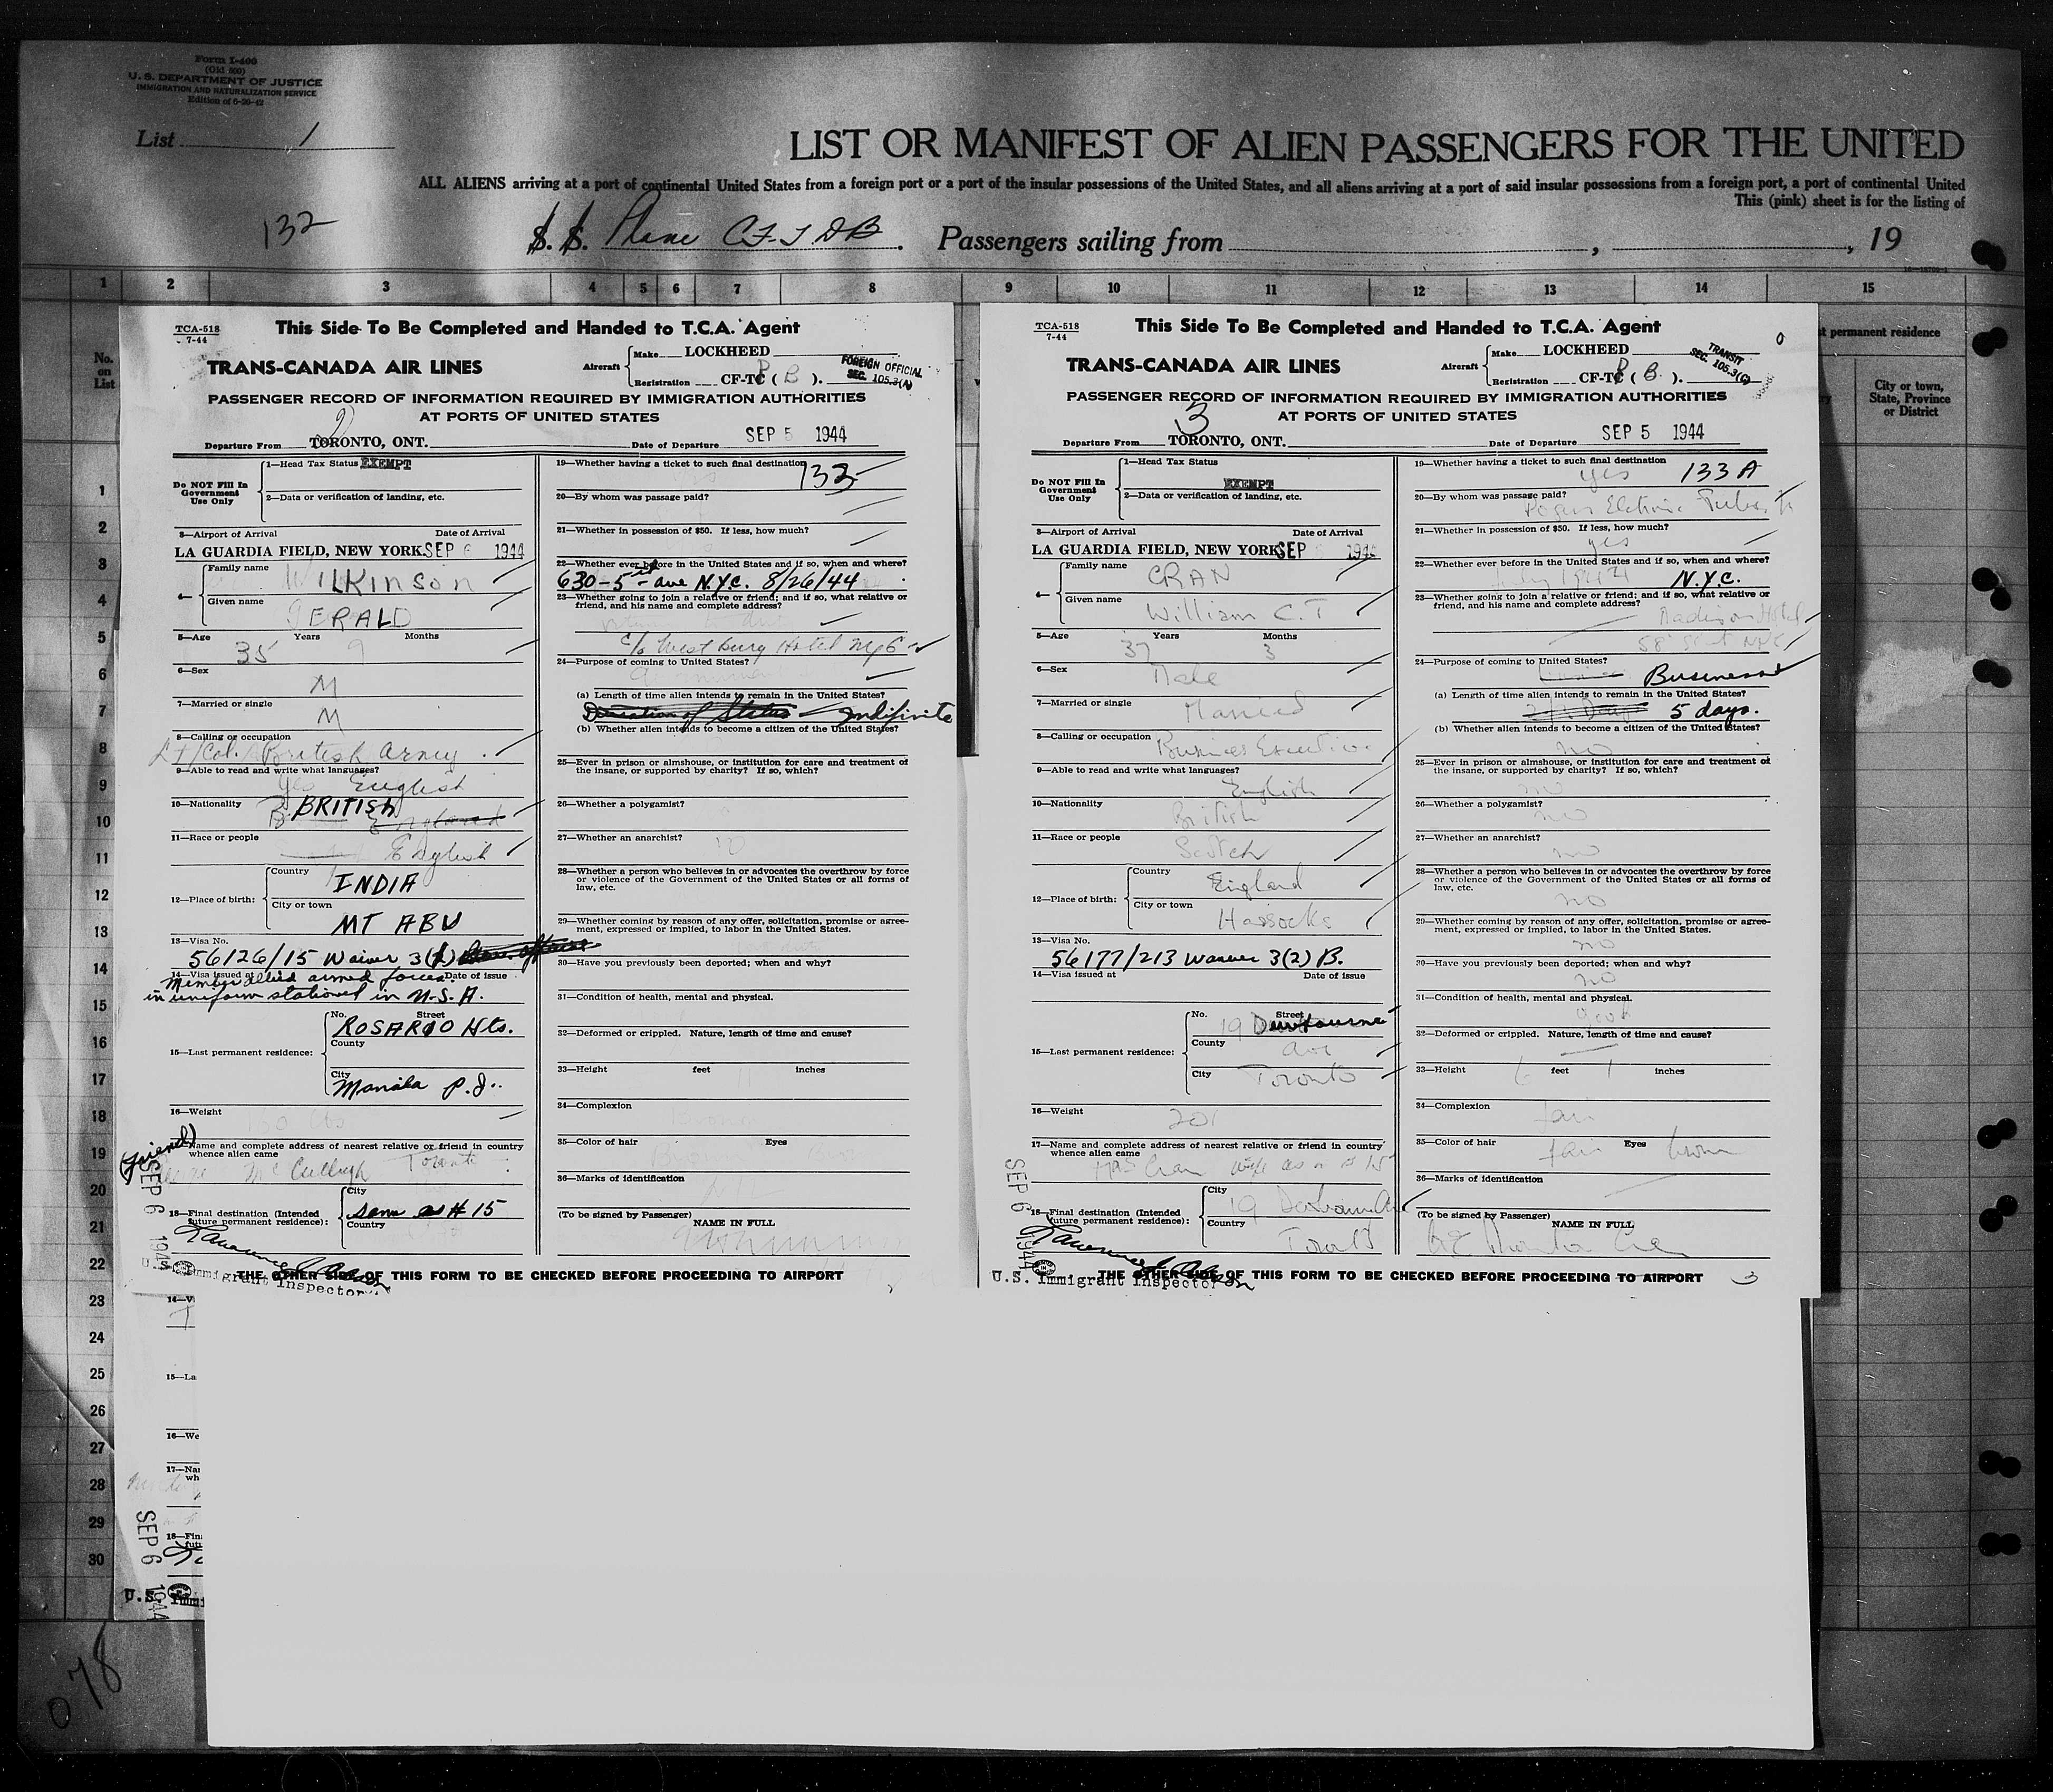 Form I-400
(Old 600)
U. S. DEPARTMENT OF JUSTICE
IMMIGRATION AND NATURALIZATION SERVICE
Edition of 6-20-42
List 1
LIST OR MANIFEST OF ALIEN PASSENGERS FOR THE UNITED
ALL ALIENS arriving at a port of continental United States from a foreign port or a port of the insular possessions of the United States, and all aliens arriving at a port of said insular possessions from a foreign port, a port of continental United
This (pink) sheet is for the listing of
132
S. S. Plane CF-T DB. Passengers sailing from , , 19
1 2 3 4 5 6 7 8 9 10 11 12 13 14 15
No.
on
List
1
2
3
4
5
6
7
8
9
10
11
12
13
14
15
16
17
18
19
20
21
22
23
24
25
26
27
28
29
30
078
permanent residence
City or town,
State, Province
or District
TCA-518
7-44
This Side To Be Completed and Handed to T.C.A. Agent
TRANS-CANADA AIR LINES
Aircraft
Make LOCKHEED
Registration CF-TC ( B ).
FOREIGN OFFICIAL
SEC. 105.3(A)
PASSENGER RECORD OF INFORMATION REQUIRED BY IMMIGRATION AUTHORITIES
AT PORTS OF UNITED STATES
2
Departure From TORONTO, ONT. Date of Departure SEP 5 1944
Do NOT Fill In
Government
Use Only
1—Head Tax Status EXEMPT
2—Data or verification of landing, etc.
3—Airport of Arrival Date of Arrival
LA GUARDIA FIELD, NEW YORK. SEP 6 1944
4—
Family name
WILKINSON
Given name
GERALD
5—Age Years Months
35 9
6—Sex
M
7—Married or single
M
8—Calling or occupation
Lt/Col. British Army
9—Able to read and write what languages?
Yes English
10—Nationality BRITISH
England
11—Race or people
English
12—Place of birth:
Country
INDIA
City or town
MT ABU
13—Visa No.
56126/15 Waiver 3(1)
14—Visa issued at Date of issue
Member allied armed forces
in uniform stationed in U.S.A.
15—Last permanent residence:
No. Street
ROSARIO Hts.
County
City
Manila P.I.
16—Weight
160 lbs
(friend)
Name and complete address of nearest relative or friend in country
whence alien came
McCullagh Toronto
18—Final destination (Intended
future permanent residence):
City
Same as # 15
Country
SEP 6 1944
U.S. Immigrant Inspector
THE OTHER SIDE OF THIS FORM TO BE CHECKED BEFORE PROCEEDING TO AIRPORT
19—Whether having a ticket to such final destination
132
20—By whom was passage paid?
21—Whether in possession of $50. If less, how much?
22—Whether ever before in the United States and if so, when and where?
630-5th ave N.Y.C. 8/26/44
23—Whether going to join a relative or friend; and if so, what relative or
friend, and his name and complete address?
c/o Westbury Hotel NYC
24—Purpose of coming to United States?
(a) Length of time alien intends to remain in the United States?
Duration of Status Indefinite
(b) Whether alien intends to become a citizen of the United States?
25—Ever in prison or almshouse, or institution for care and treatment of
the insane, or supported by charity? If so, which?
26—Whether a polygamist?
27—Whether an anarchist?
28—Whether a person who believes in or advocates the overthrow by force
or violence of the Government of the United States or all forms of
law, etc.
29—Whether coming by reason of any offer, solicitation, promise or agree-
ment, expressed or implied, to labor in the United States.
30—Have you previously been deported; when and why?
31—Condition of health, mental and physical.
32—Deformed or crippled. Nature, length of time and cause?
33—Height feet 11 inches
34—Complexion
35—Color of hair Eyes
36—Marks of identification
(To be signed by Passenger)
NAME IN FULL
TCA-518
7-44
This Side To Be Completed and Handed to T.C.A. Agent
0
TRANS-CANADA AIR LINES
Aircraft
Make LOCKHEED
Registration CF-TC ( B ).
TRANSIT
SEC. 105.3(C)
PASSENGER RECORD OF INFORMATION REQUIRED BY IMMIGRATION AUTHORITIES
AT PORTS OF UNITED STATES
3
Departure From TORONTO, ONT. Date of Departure SEP 5 1944
Do NOT Fill In
Government
Use Only
1—Head Tax Status
EXEMPT
2—Data or verification of landing, etc.
3—Airport of Arrival Date of Arrival
LA GUARDIA FIELD, NEW YORK SEP 1944
4—
Family name
CRAN
Given name
William C. T
5—Age Years Months
37 3
6—Sex
Male
7—Married or single
Married
8—Calling or occupation
Business Executive
9—Able to read and write what languages?
English
10—Nationality
British
11—Race or people
Scotch
12—Place of birth:
Country
England
City or town
Hassocks
13—Visa No.
56177/213 Waiver 3(2) B.
14—Visa issued at Date of issue
15—Last permanent residence:
No. Street
19 Dunbourne
County
Ave
City
Toronto
16—Weight
201
17—Name and complete address of nearest relative or friend in country
whence alien came
Mrs Cran wife as in # 15
18—Final destination (Intended
future permanent residence):
City
19
Country
Toronto
SEP 6 1944
U.S. Immigrant Inspector
THE OTHER SIDE OF THIS FORM TO BE CHECKED BEFORE PROCEEDING TO AIRPORT
3
19—Whether having a ticket to such final destination
yes 133 A
20—By whom was passage paid?
Rogers Electronic Tubes
21—Whether in possession of $50. If less, how much?
yes
22—Whether ever before in the United States and if so, when and where?
July N.Y.C.
23—Whether going to join a relative or friend; and if so, what relative or
friend, and his name and complete address?
Madison Hotel
58 St NYC
24—Purpose of coming to United States?
Business
(a) Length of time alien intends to remain in the United States?
5 days.
(b) Whether alien intends to become a citizen of the United States?
no
25—Ever in prison or almshouse, or institution for care and treatment of
the insane, or supported by charity? If so, which?
no
26—Whether a polygamist?
no
27—Whether an anarchist?
no
28—Whether a person who believes in or advocates the overthrow by force
or violence of the Government of the United States or all forms of
law, etc.
no
29—Whether coming by reason of any offer, solicitation, promise or agree-
ment, expressed or implied, to labor in the United States.
no
30—Have you previously been deported; when and why?
no
31—Condition of health, mental and physical.
good
32—Deformed or crippled. Nature, length of time and cause?
33—Height 6 feet 1 inches
34—Complexion
fair
35—Color of hair Eyes
fair brown
36—Marks of identification
(To be signed by Passenger)
NAME IN FULL
14—V
15—La
16—We
17—Na
wh
18—Fin
futu
SEP 6 1944
U.S. Immi